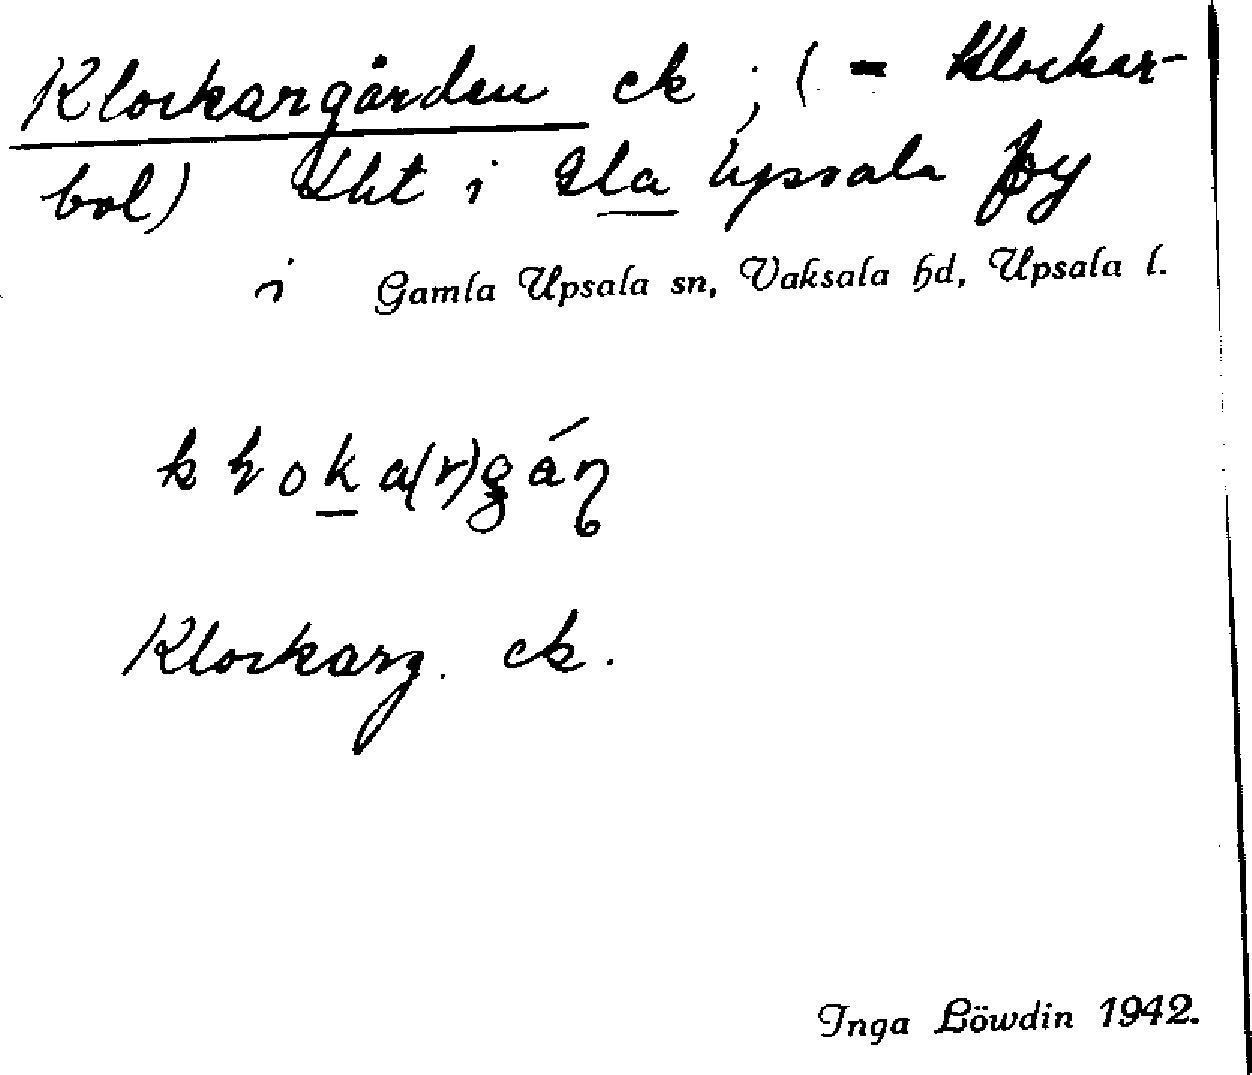 Klockargården ck ; ( = Klockar-
bol) i Gla Upsala by
i Gamla Upsala sn, Vaksala hd, Upsala l.
Klockarg. ck.
Inga Löwdin 1942.